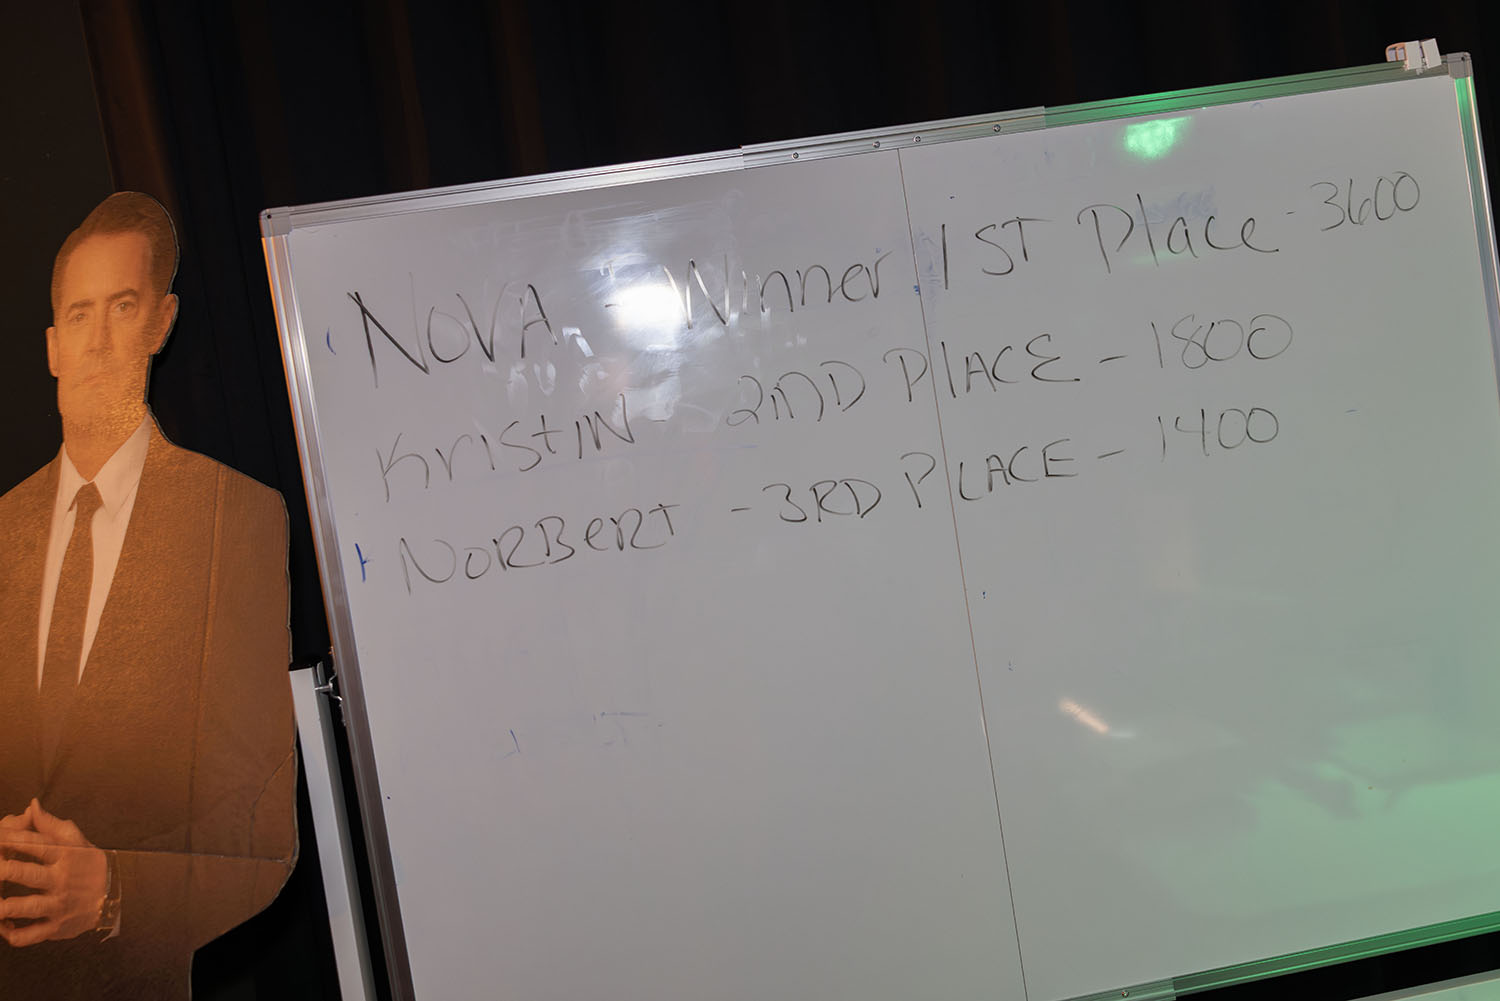 NOVA - Winner 1ST Place - 3600
KristIN - 2ND PLACE - 1800
NORBERT - 3RD PLACE - 1400